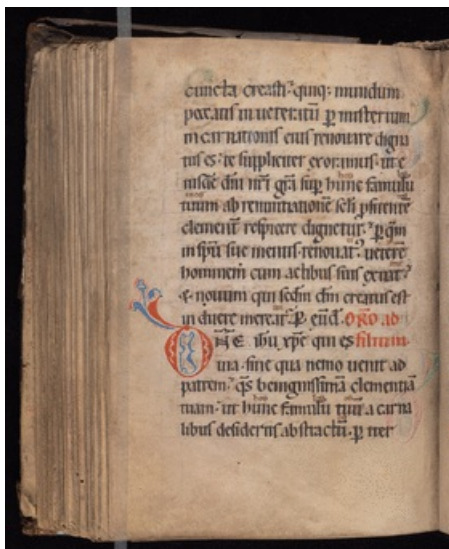 cuncta creasti· quiq; mundum
peccatis inueteratū p misterium
incarnationis eius renouare digna
tus es· te suppliciter exoramus· ut e
iusdē dn̄i nr̄i grā sup hunc famulū
tuum ab renuntiationē sc̄li
clementer respicere digneris· p quā
in spū sue mentis renouat· ueterē
hominem cum actibus suis exuat·
& nouum qui scdm dm creatus est
induere mereat· p eūd· orō ad
DNE ihu xp̄e qui es filium·
uia· sine qua nemo uenit ad
patrem· qs benignissimā clementiā
tuam· ut hunc famulū tuū a carna
libus desideriis abstractū· p iter